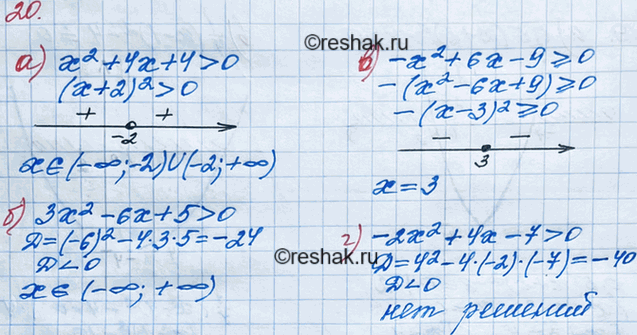 20.
©reshak.ru
а) x² + 4x + 4 > 0
(x+2)² > 0
+ +
-2
x ∈ (-∞; -2) ∪ (-2; +∞)
б) 3x² - 6x + 5 > 0
D = (-6)² - 4·3·5 = -24
D < 0
x ∈ (-∞; +∞)
©reshak.ru
в) -x² + 6x - 9 ≥ 0
-(x² - 6x + 9) ≥ 0
-(x-3)² ≥ 0
- -
3
x = 3
г) -2x² + 4x - 7 > 0
D = 4² - 4·(-2)·(-7) = -40
D < 0
нет решений